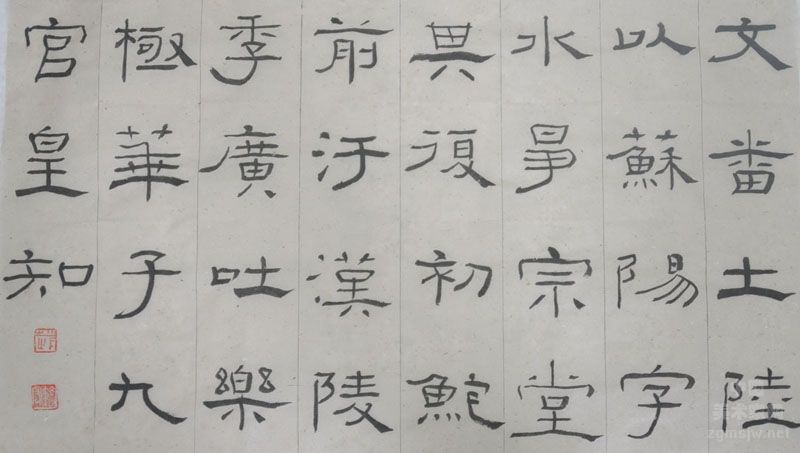 文畨土陸
以蘇陽字
水㝵宗堂
其復初鮀
前汙漢陵
季廣吐樂
極華子九
官皇知
zgmsjw.net